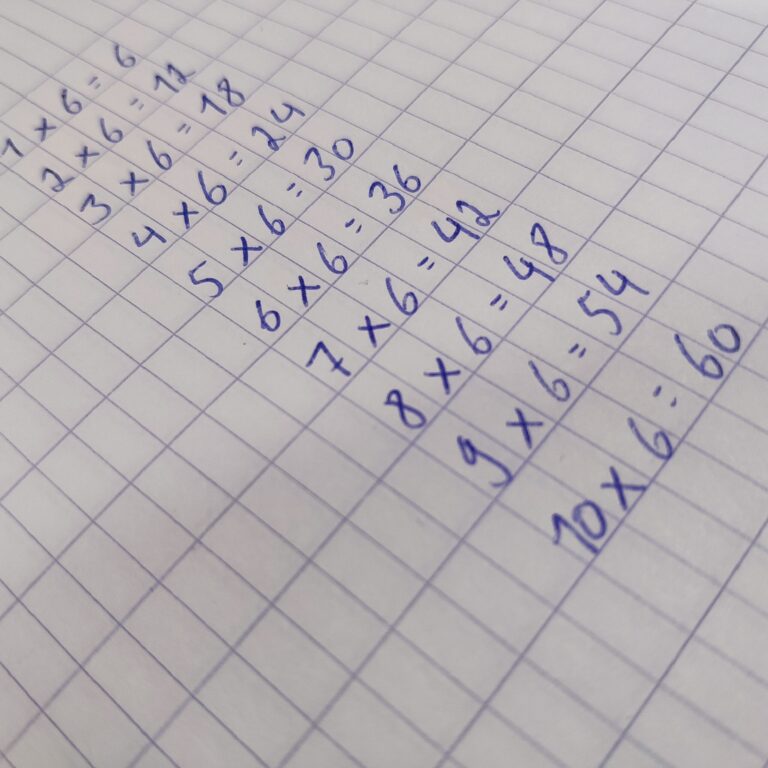 1 x 6 = 6
2 x 6 = 12
3 x 6 = 18
4 x 6 = 24
5 x 6 = 30
6 x 6 = 36
7 x 6 = 42
8 x 6 = 48
9 x 6 = 54
10 x 6 = 60